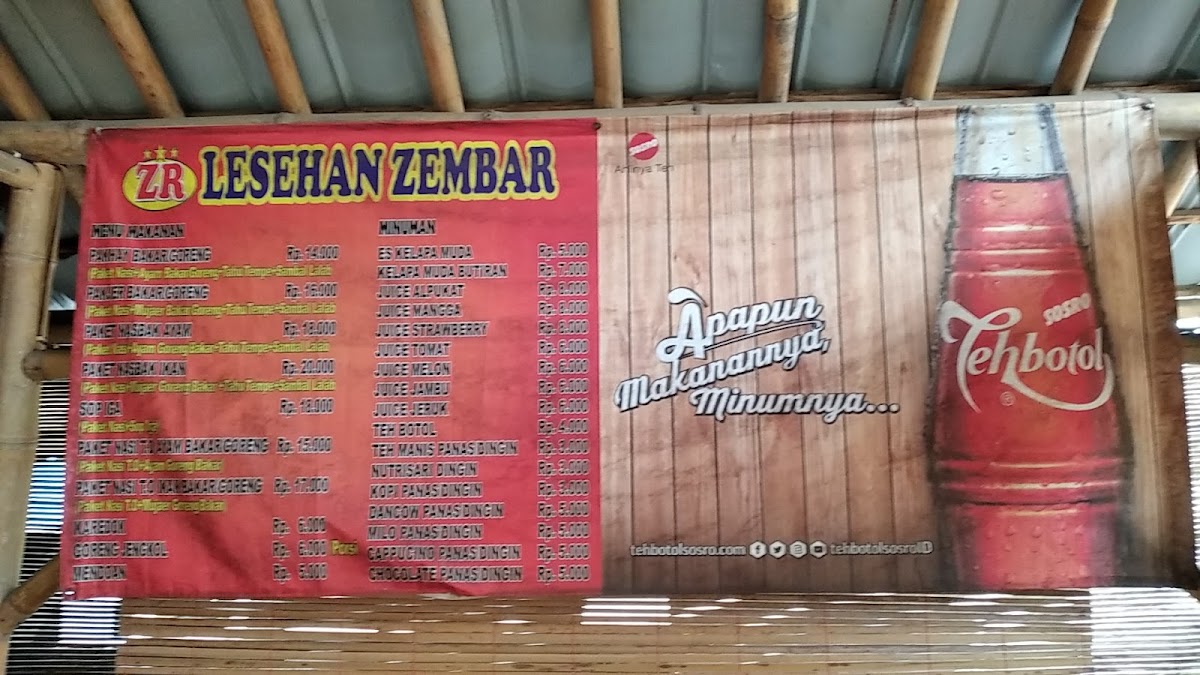 ZR LESEHAN ZEMBAR
MENU MAKANAN
PAKHAY BAKAR/GORENG Rp. 14.000
Paket Nasi+Ayam Bakar/Goreng+Tahu Tempe+Sambal Lalab
BAKAR/GORENG Rp. 16.000
PAKET NASBAK AYAM Rp. 18.000
PAKET NASBAK IKAN Rp. 20.000
SOP IGA Rp. 18.000
PAKET NASI T.O AYAM BAKAR/GORENG Rp. 15.000
Paket Nasi T.O+Ayam Goreng/Bakar
PAKET NASI T.O IKAN BAKAR/GORENG Rp. 17.000
KAREDOK Rp. 6.000
GORENG JENGKOL Rp. 6.000 Porsi
MENDOAN Rp. 5.000
MINUMAN
ES KELAPA MUDA Rp. 5.000
KELAPA MUDA BUTIRAN Rp. 7.000
JUICE ALPUKAT Rp. 8.000
JUICE MANGGA Rp. 8.000
JUICE STRAWBERRY Rp. 8.000
JUICE TOMAT Rp. 6.000
JUICE MELON Rp. 6.000
JUICE JAMBU Rp. 6.000
JUICE JERUK Rp. 6.000
TEH BOTOL Rp. 4.000
TEH MANIS PANAS DINGIN Rp. 3.000
NUTRISARI DINGIN Rp. 3.000
KOPI PANAS DINGIN Rp. 3.000
DANCOW PANAS DINGIN Rp. 5.000
MILO PANAS DINGIN Rp. 5.000
CAPPUCINO PANAS DINGIN Rp. 5.000
CHOCOLATE PANAS DINGIN Rp. 5.000
SOSRO
Ahlinya Teh
Apapun
Makanannya,
Minumnya...
tehbotolsosro.com tehbotolsosroID
SOSRO
Tehbotol